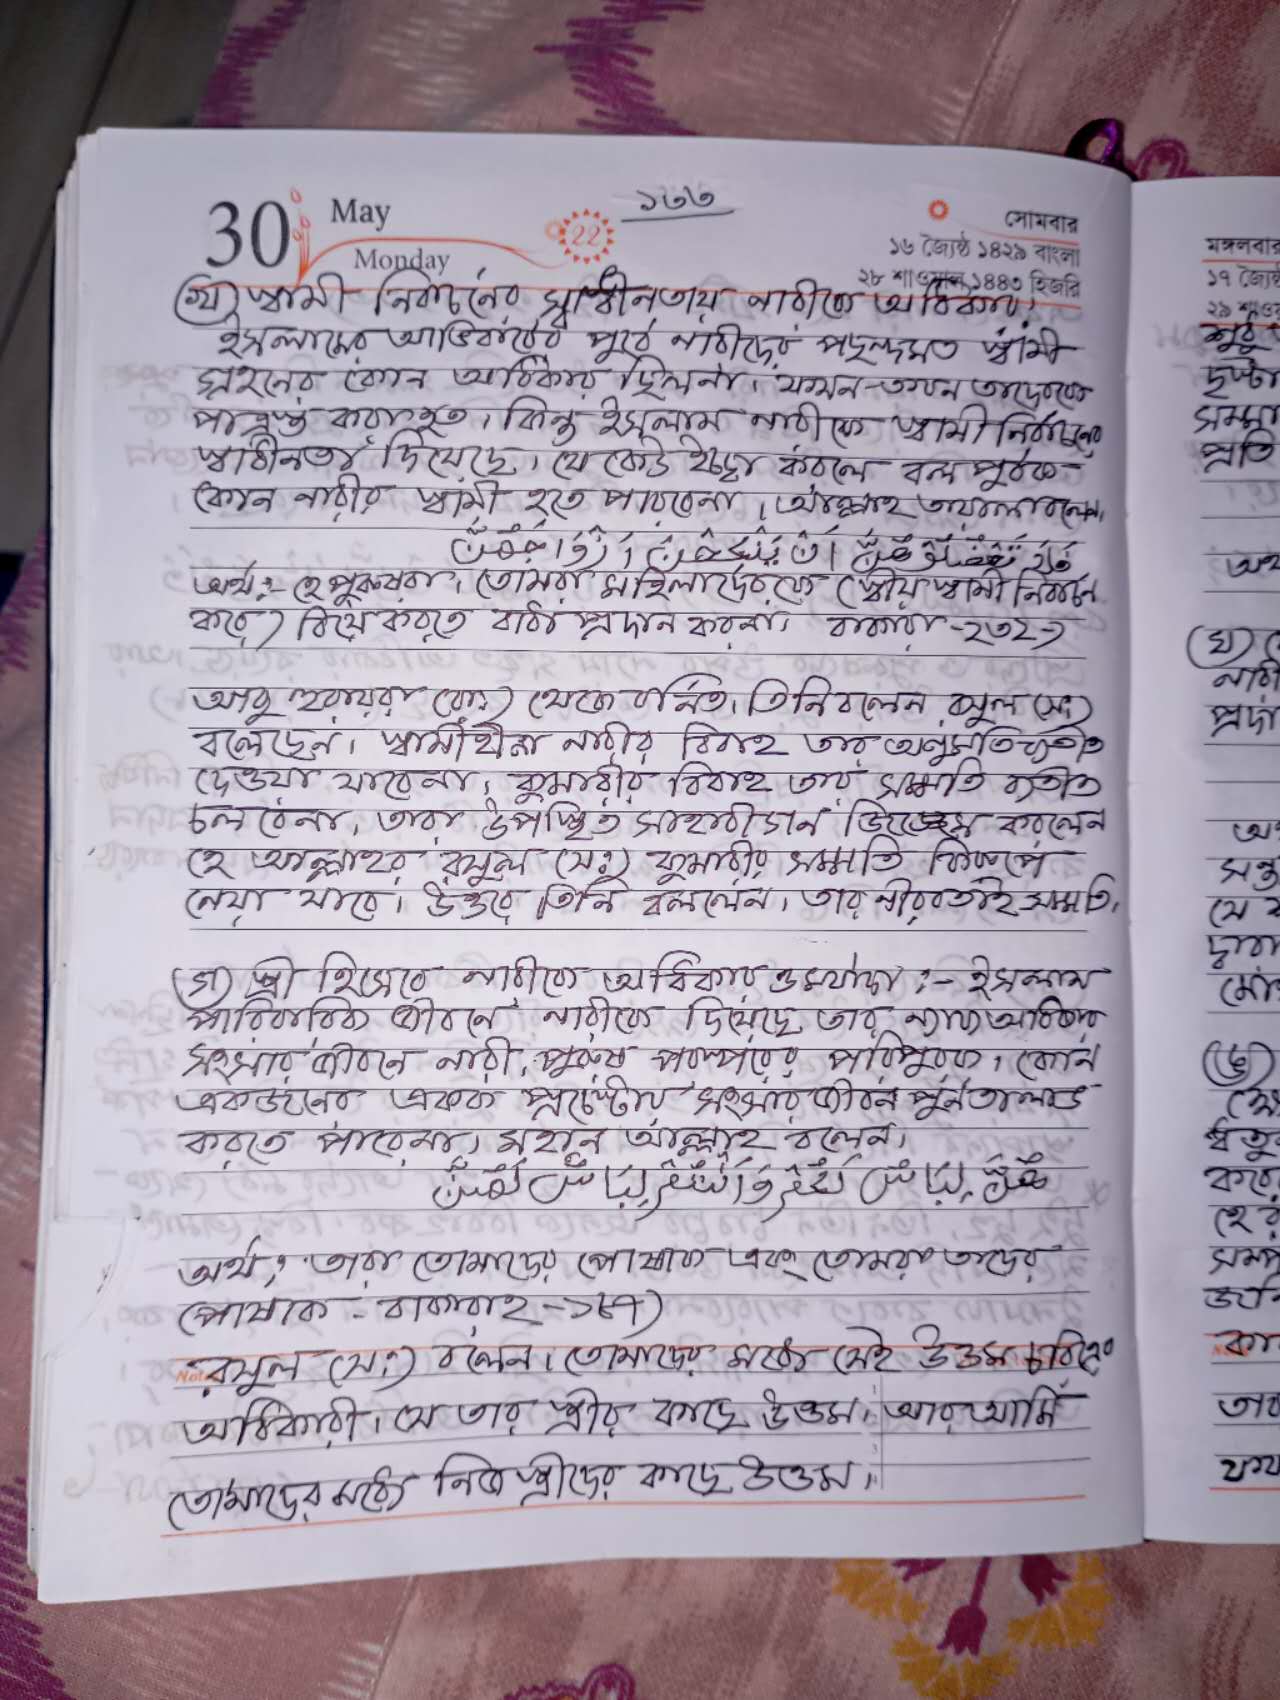 30 May
Monday
22
১৩৩
সোমবার
১৬ জ্যৈষ্ঠ ১৪২৯ বাংলা
২৮ শাওয়াল ১৪৪৩ হিজরি
(খ) স্বামী নির্বাচনের স্বাধীনতায় নারীকে অধিকার:
ইসলামের আভির্বাবের পূর্বে নারীদের পছন্দমত স্বামী
গ্রহনের কোন অধিকার ছিলনা। যখন-তখন তাদেরকে
পাত্রস্থ করা হত। কিন্তু ইসলাম নারীকে স্বামী নির্বাচনের
স্বাধীনতা দিয়েছে। যে কেউ ইচ্ছা করলে বল পূর্বক
কোন নারীর স্বামী হতে পারবেনা। আল্লাহ তায়ালা বলেন,
অর্থ:- হে পুরুষরা, তোমরা মহিলাদেরকে (স্বীয় স্বামী নির্বাচন
করে) বিয়ে করতে বাধা প্রদান করনা। বাকারা -২৩২)
আবু হুরায়রা (রাঃ) থেকে বর্নিত, তিনি বলেন রসুল (সঃ)
বলেছেন। স্বামীহীনা নারীর বিবাহ তার অনুমতি ব্যতীত
দেওয়া যাবেনা, কুমারীর বিবাহ তার সম্মতি ব্যতীত
চলবেনা, তারা উপস্থিত সাহাবীগন জিজ্ঞেস করলেন
হে আল্লাহর রসুল (সঃ) কুমারীর সম্মতি কিরূপে
নেয়া যাবে। উত্তরে তিনি বললেন, তার নীরবতাই সম্মতি,
(গ) স্ত্রী হিসেবে নারীকে অধিকার ও মর্যাদা :- ইসলাম
পারিবারিক জীবনে নারীকে দিয়েছে তার ন্যায্য অধিকার
সংসার জীবনে নারী, পুরুষ পরস্পরের পরিপুরক, কোন
একজনের একক প্রচেষ্টায় সংসার জীবন পুর্নতা লাভ
করতে পারেনা, মহান আল্লাহ বলেন,
অর্থ: তারা তোমাদের পোষাক এবং তোমরা তাদের
পোষাক - বাকারাহ -১৮৭)
রসুল (সঃ) বলেন, তোমাদের মধ্যে সেই উত্তম চরিত্রের
অধিকারী, যে তার স্ত্রীর কাছে উত্তম, আর আমি
তোমাদের মধ্যে নিজ স্ত্রীদের কাছে উত্তম,
মঙ্গলবার
১৭ জ্যৈষ্ঠ
প্রতি
(ঘ)
নারী
(ঙ)